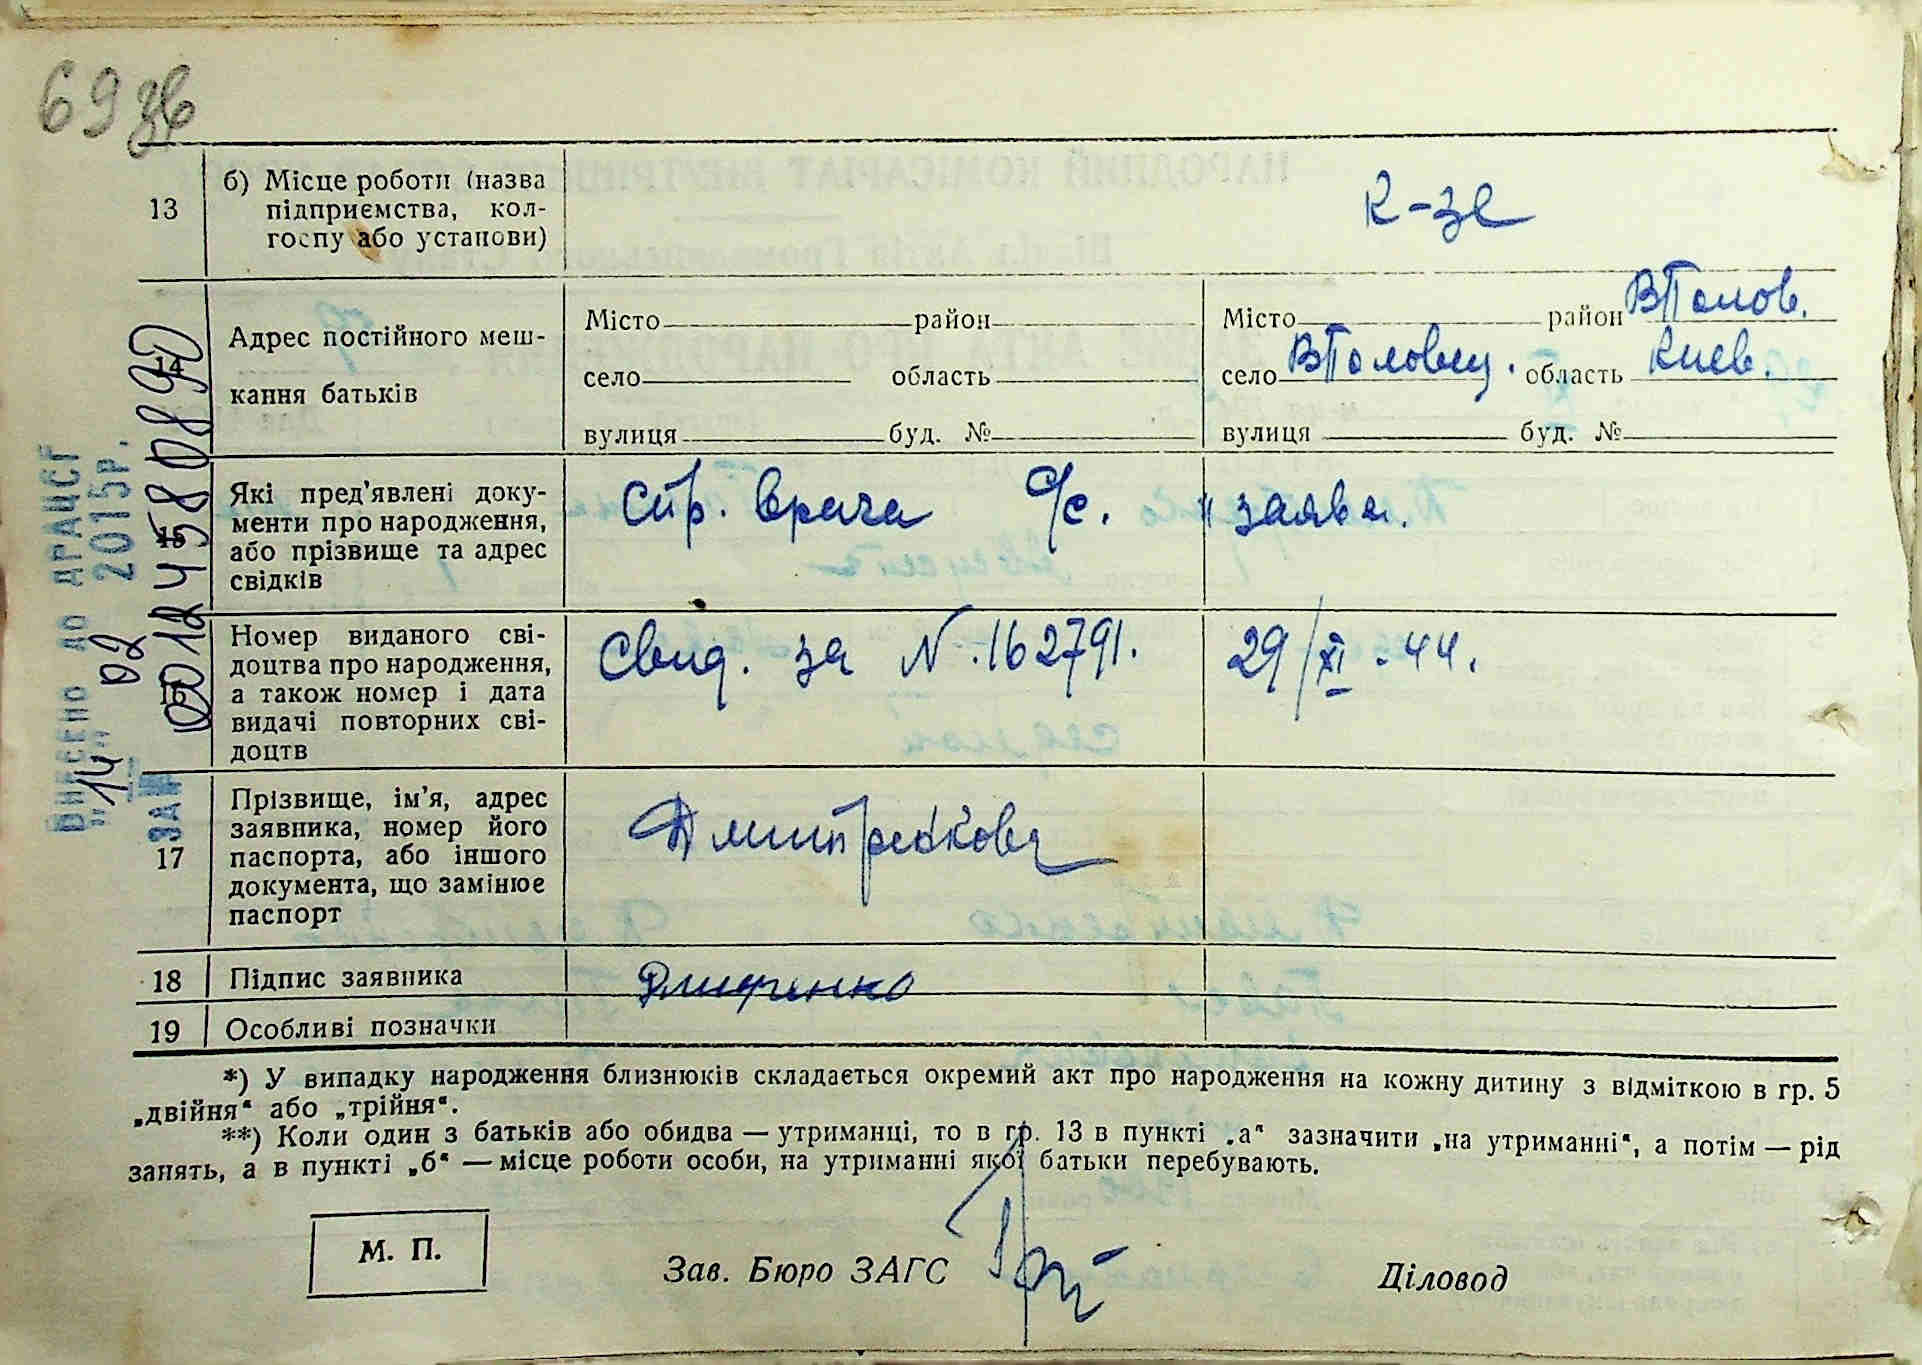 69 зв
13
б) Місце роботи (назва
підприємства, кол-
госпу або установи)
К-зе
14
Адрес постійного меш-
кання батьків
Місто район
село область
вулиця буд. №
Місто район ВПолов.
село ВПоловец. область Киев.
вулиця буд. №
15
Які пред'явлені доку-
менти про народження,
або прізвище та адрес
свідків
Спр. врача с/с. и заява.
16
Номер виданого сві-
доцтва про народження,
а також номер і дата
видачі повторних сві-
доцтв
Свид. за N.162791. 29/XI-44.
17
Прізвище, ім'я, адрес
заявника, номер його
паспорта, або іншого
документа, що замінює
паспорт
18
Підпис заявника
Дмитренко
19
Особливі позначки
Внесено до ДРАЦСГ
„14" 02 2015р.
ЗА №
00124580890
*) У випадку народження близнюків складається окремий акт про народження на кожну дитину з відміткою в гр. 5
„двійня" або „трійня".
**) Коли один з батьків або обидва — утриманці, то в гр. 13 в пункті „а" зазначити „на утриманні", а потім — рід
занять, а в пункті „б" — місце роботи особи, на утриманні якої батьки перебувають.
М. П.
Зав. Бюро ЗАГС
Діловод